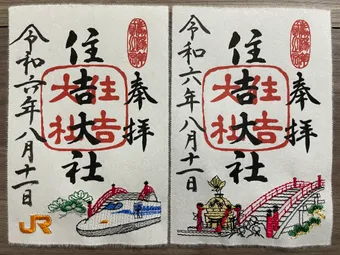 奉拝
住吉大社
住吉
大社
令和六年八月十一日
JR
奉拝
住吉大社
住吉
大社
令和六年八月十一日